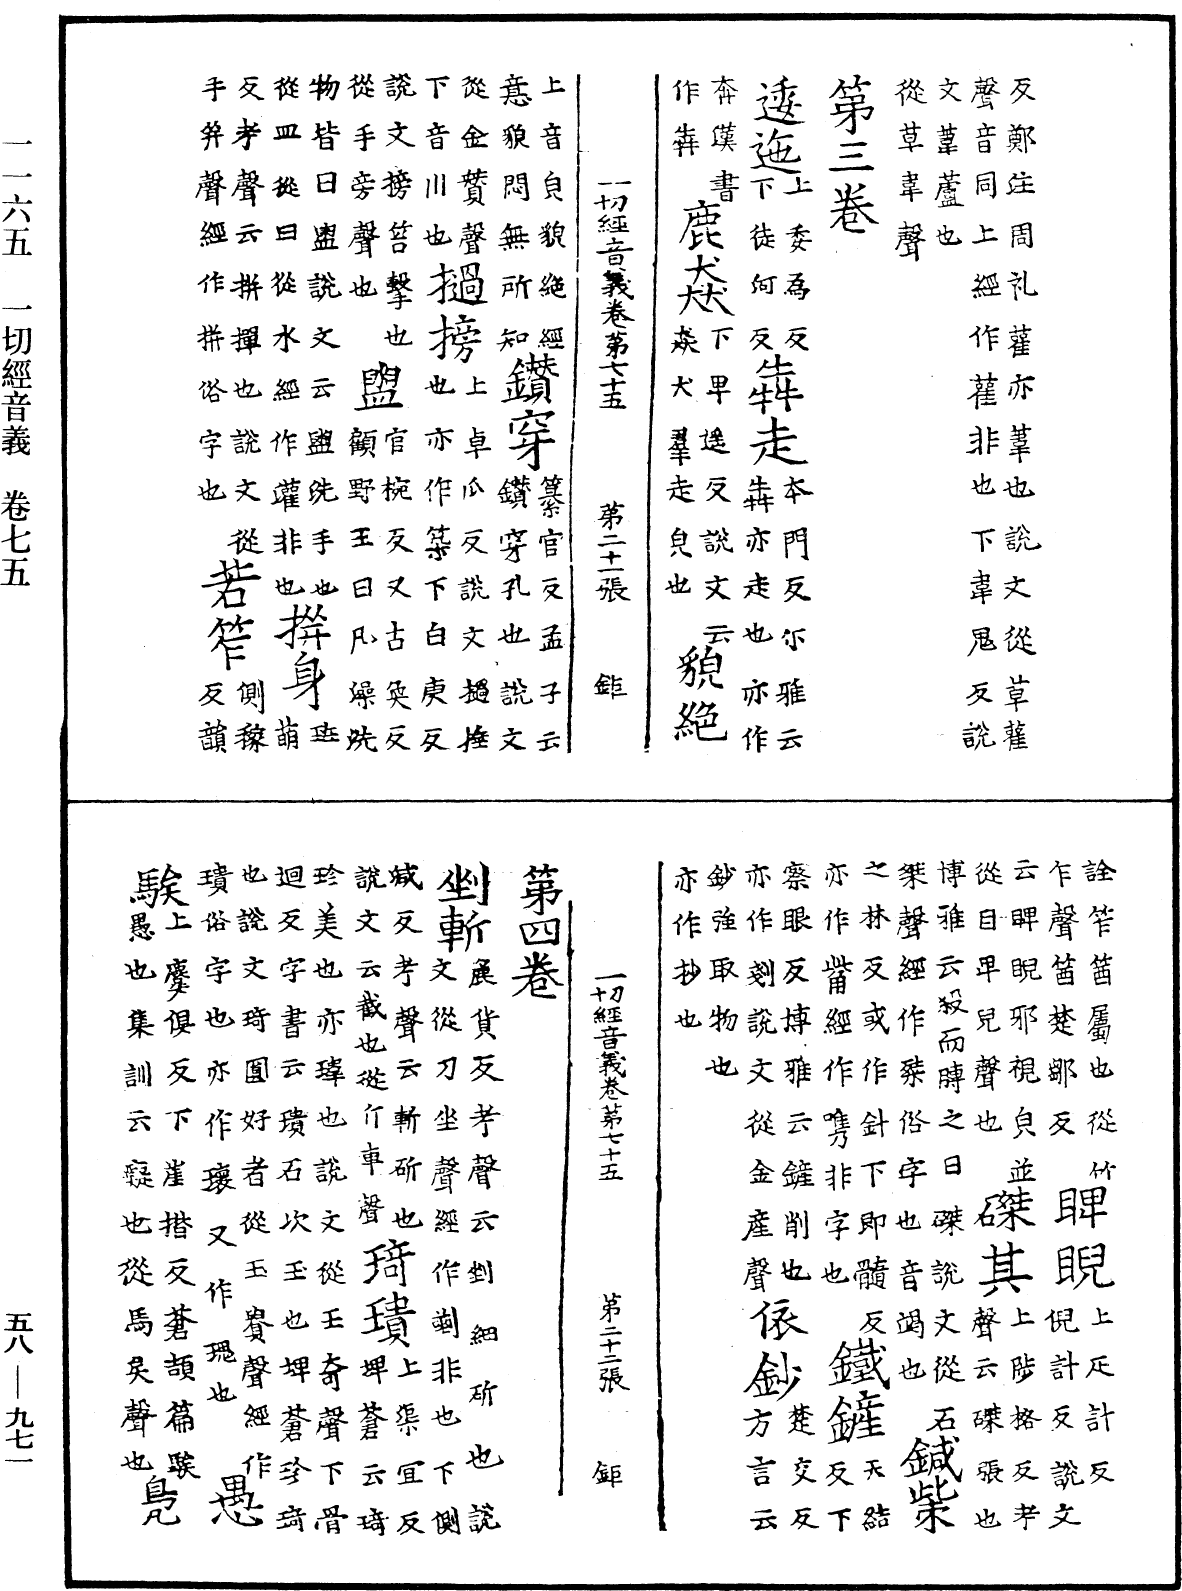 一一六五　一切經音義　卷七五
五八—九七一
反鄭注周礼雚亦葦也說文從草雚
聲音同上經作雚非也下韋鬼反說
文葦蘆也
從草韋聲
第三卷
逶迤上委為反
下徒何反犇走本門反尒雅云
犇亦走也亦作
奔漢書
作犇鹿猋下畢遥反說文云
猋犬羣走皃也貌絶
一切經音義卷第七十五　第二十一張　鉅
上音皃貌絶經
意貌悶無所知鑽穿纂官反孟子云
鑽穿孔也說文
從金贊聲
下音川也撾搒上卓瓜反說文撾捶
也亦作築下白庚反
說文搒笞擊也
從手旁聲也盥官椀反又古奐反
顧野王曰凡澡洗
物皆曰盥說文云盥洗手也
從皿從臼從水經作灌非也拼身
萌反考聲云拼撣也說文從
手并聲經作拼俗字也若笮側稼
反韻
詮笮笛屬也從竹
乍聲笛楚鄒反睥睨上疋計反
倪計反說文
云睥睨邪視皃並
從目卑兒聲也磔其上陟格反考
聲云磔張也
博雅云殺而膊之曰磔說文從石
桀聲經作㮮俗字也音竭也鍼㭰
之林反或作針下即髓反
亦作觜經作㗱非字也鐵鏟天結
反下
察眼反博雅云鏟削也
亦作剗說文從金產聲依鈔楚交反
方言云
鈔強取物也
亦作抄也
一切經音義卷第七十五　第二十二張　鉅
第四卷
剉斬
展貨反考聲云剉細斫也說
文從刀坐聲經作剒非也下側
減反考聲云斬斫也
說文云截也從斤車聲琦璝上渠宜反
埤蒼云琦
珍美也亦瑋也說文從王奇聲下骨
迴反字書云璝石次玉也埤蒼珍琦
也說文琦圓好者從玉貴聲經作
瓌俗字也亦作瓌又作瑰也愚
騃上麌俱反下崖揩反蒼頡篇騃
愚也集訓云癡也從馬矣聲也鳧